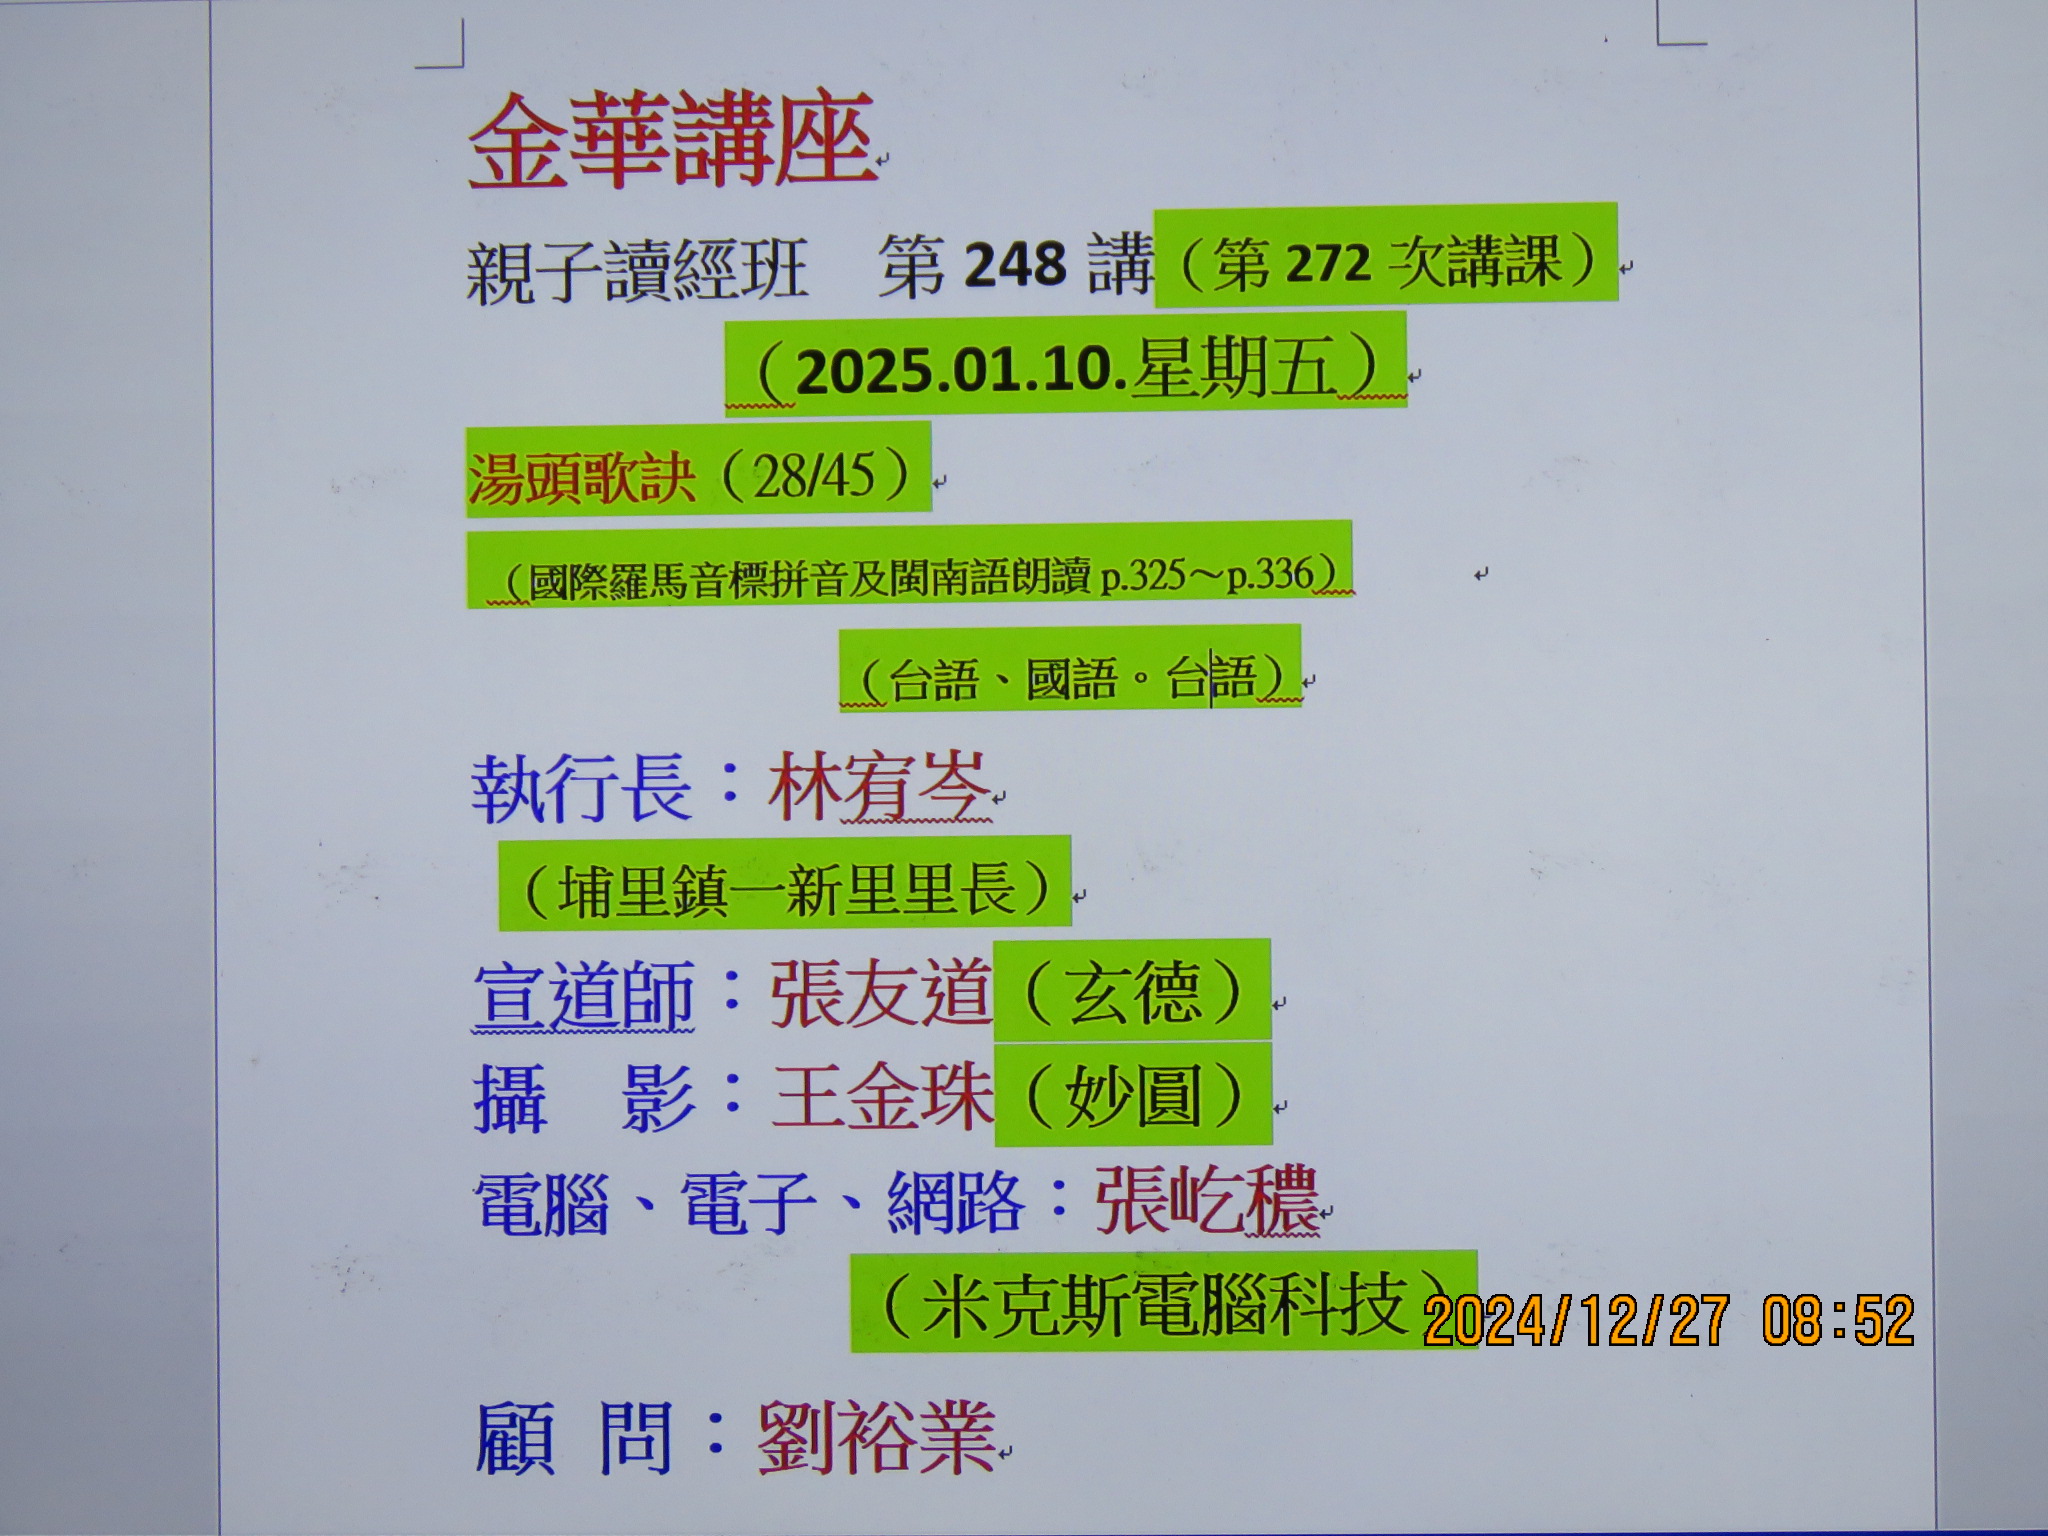 金華講座
親子讀經班　第 248 講（第 272 次講課）
（2025.01.10.星期五）
湯頭歌訣（28/45）
（國際羅馬音標拼音及閩南語朗讀 p.325～p.336）
（台語、國語。台語）
執行長：林宥岑
（埔里鎮一新里里長）
宣道師：張友道（玄德）
攝　影：王金珠（妙圓）
電腦、電子、網路：張屹穠
（米克斯電腦科技）
2024/12/27 08:52
顧 問：劉裕業